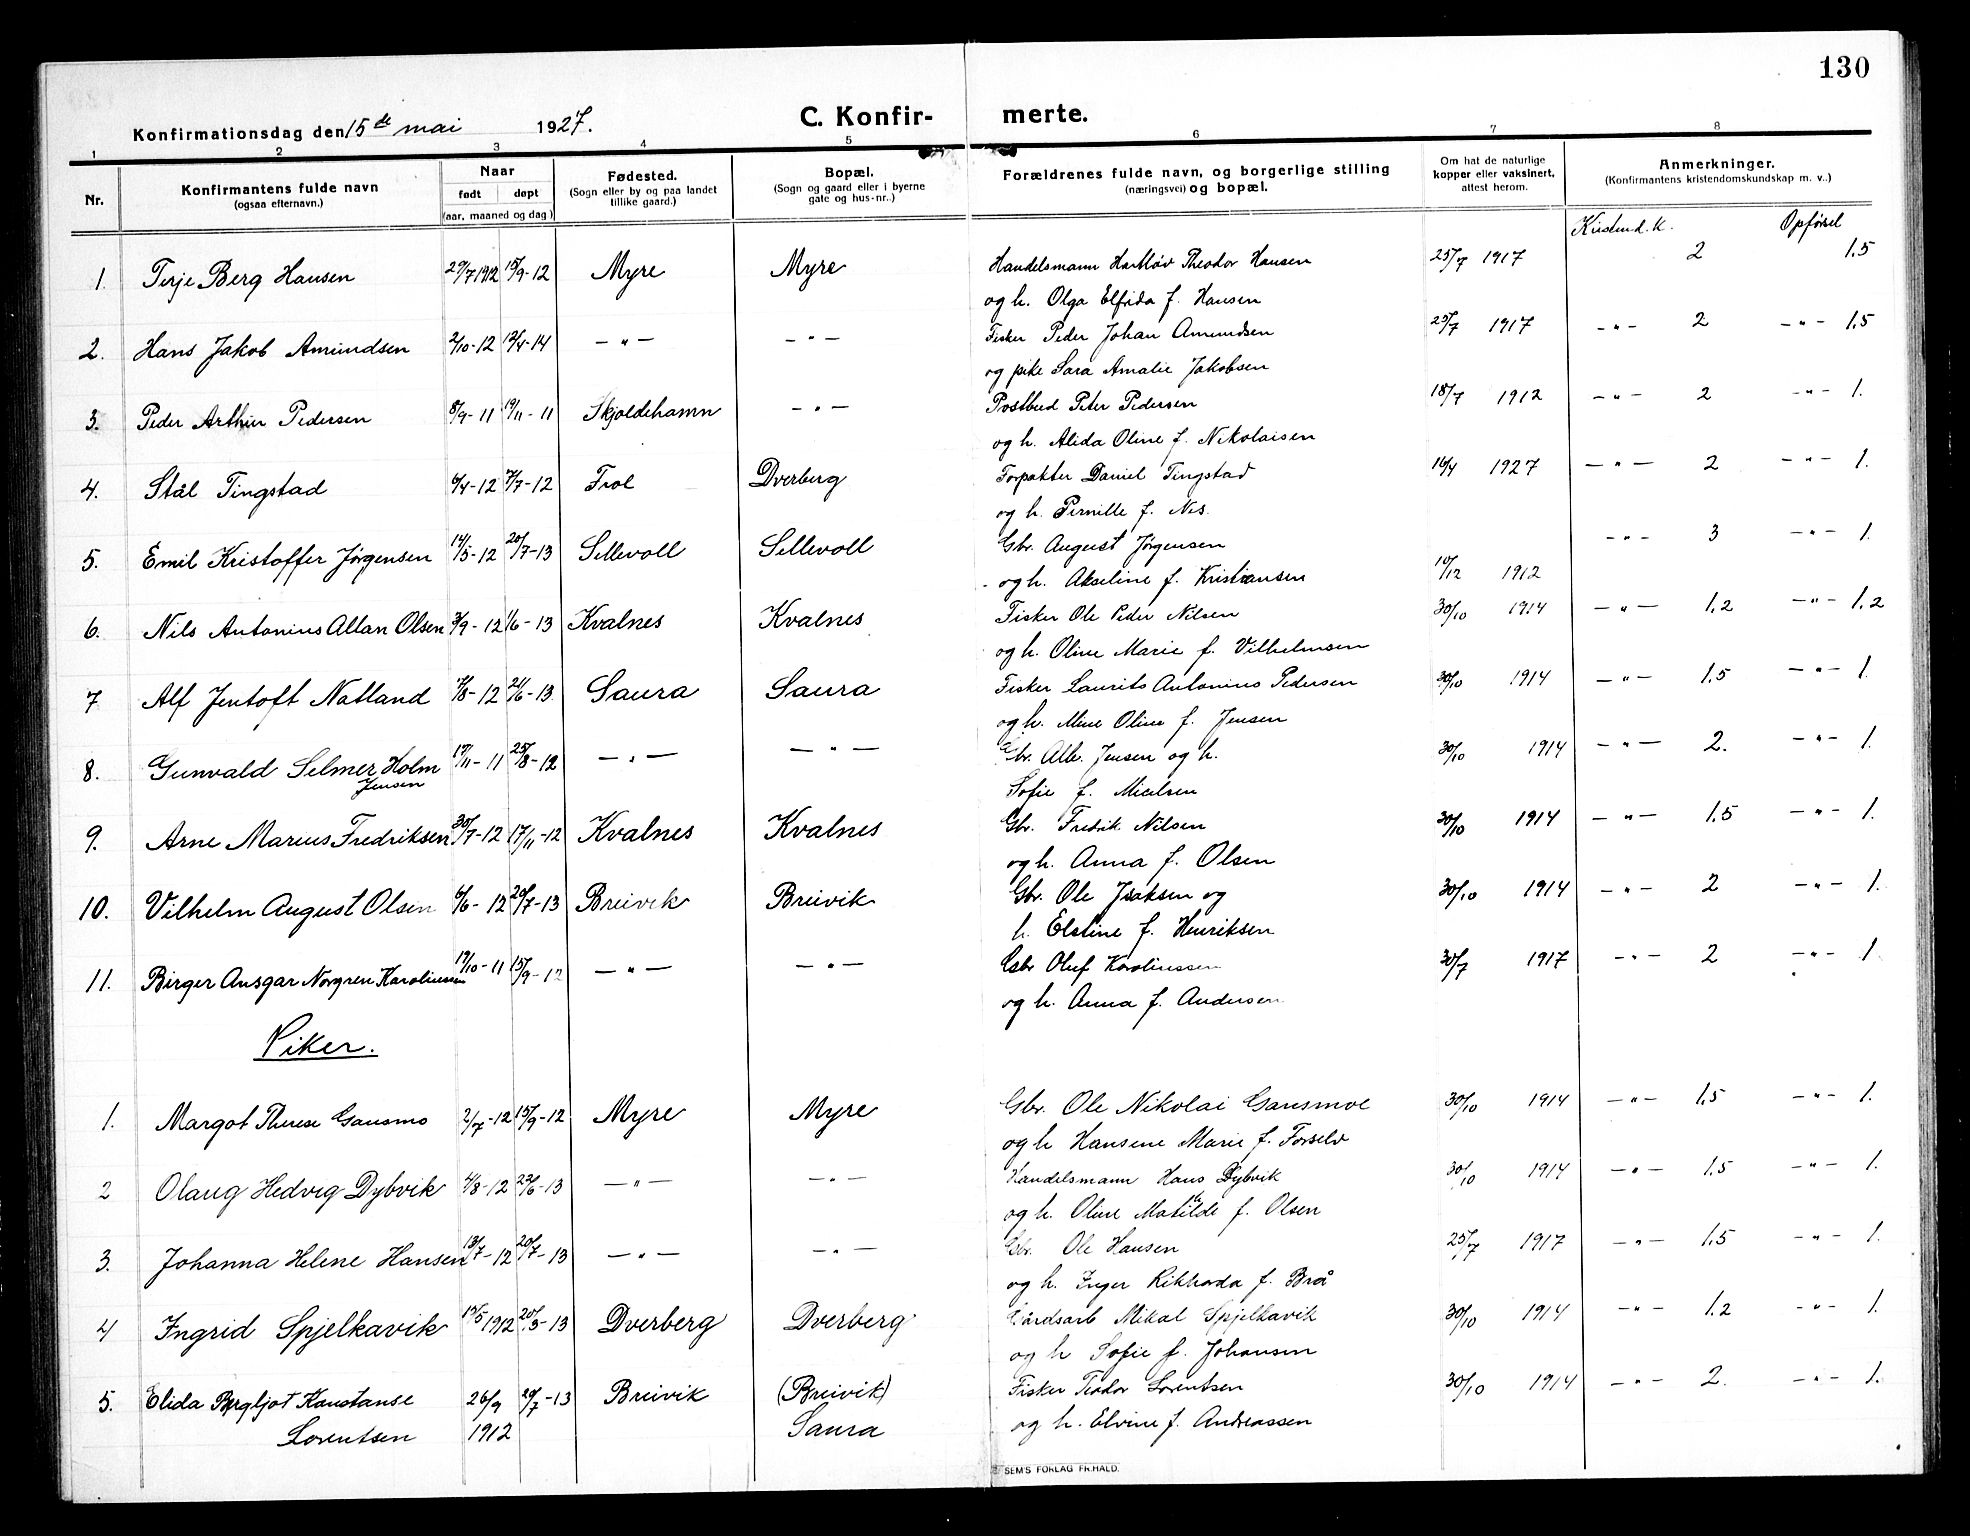 130
Konfirmationsdag den 15de mai 1927. C. Konfirmerte.
1 2 3 4 5 6 7 8
Nr. Konfirmantens fulde navn (ogsaa efternavn.) Naar født døpt (aar, maaned og dag) Fødested. (Sogn eller by og paa landet tillike gaard.) Bopæl. (Sogn og gaard eller i byerne gate og hus-nr.) Forældrenes fulde navn, og borgerlige stilling (næringsvei) og bopæl. Om hat de naturlige kopper eller vaksinert, attest herom. Anmerkninger. (Konfirmantens kristendomskundskap m. v..)
Kristend.k. Opførsel
1. Terje Berg Hansen 29/7 1912 15/9-12 Myre Myre Handelsmann Hartløv Theodor Hansen 25/7 1917 2 1,5
og h. Olga Elfida f. Hansen
2. Hans Jakob Amundsen 2/10-12 12/4-14 — " — — " — Fisker Peder Johan Amundsen 25/7 1917 — " — 2 — " — 1,5
og pike Sara Amalie Jakobsen
3. Peder Arthur Pedersen 8/9-11 19/11-11 Skjoldehamn — " — Postbud Peter Pedersen 18/7 1912 — " — 2 — " — 1.
og h. Alida Oline f. Nikolaisen
4. Stål Tingstad 6/4-12 7/7-12 Frol Dverberg Forpakter Daniel Tingstad 16/4 1927 — " — 2 — " — 1.
og h. Pernille f. Nes.
5. Emil Kristoffer Jørgensen 14/5-12 20/7-13 Sellevoll Sellevoll Gbr. August Jørgensen — " — 3 — " — 1.
og h. Akseline f. Kristiansen 10/12 1912
6. Nils Antonius Allan Olsen 3/9-12 1/6-13 Kvalnes Kvalnes Fisker Ole Peder Nilsen 30/10 1914 — " — 1,2 — " — 1,2
og h. Oline Marie f. Vilhelmsen
7 Alf Jentoft Natland 7/8-12 21/6-13 Saura Saura Fisker Laurits Antonius Pedersen 30/10 1914 — " — 1,5 — " — 1.
og h. Mine Oline f. Jensen
8. Gunvald Selmer Holm Jensen 17/11-11 25/8-12 — " — — " — Gbr. Alb. Jensen og h. 30/10 1914 — " — 2. — " — 1.
Sofie f.
9. Arne Marius Fredriksen 30/7-12 17/11-12 Kvalnes Kvalnes Gbr. Fredrik Nilsen 30/10 1914 — " — 1,5 — " — 1.
og h. Anna f. Olsen
10. Vilhelm August Olsen 6/6-12 20/7-13 Breivik Breivik Gbr. Ole Isaksen og 30/10 1914 — " — 2 — " — 1.
h. Elstine f. Henriksen
11. Birger Ansgar Norgren Karoliussen 19/10-11 15/9-12 — " — — " — Gbr Oluf Karoliussen 30/7 1917 — " — 2 — " — 1.
og h. Anna f. Andersen
Piker.
1. Margot Therese Gausmo 2/7-12 15/9-12 Myre Myre Gbr. Ole Nikolai Gausmoe 30/10 1914 — " — 1,5 — " — 1.
og h Hansene Marie f. Forselv
2 Olaug Hedvig Dybvik 4/8-12 22/6-13 — " — — " — Handelsmann Hans Dybvik 30/10 1914 — " — 1,5 — " — 1.
og h. Oline Matilde f. Olsen
3. Johanna Helene Hansen 13/7-12 20/7-13 — " — — " — Gbr. Ole Hansen 25/7 1917 — " — 1,5 — " — 1.
og h. Inger Rikharda f. Brå
4 Ingrid Spjelkavik 15/5 1912 20/3-13 Dverberg Dverberg Gårdsarb Mikal Spjelkavik 30/10 1914 — " — 1,2 — " — 1.
og h Sofie f. Johansen
5. Elida Bergljot Konstanse 26/9 20/7-13 Breivik (Breivik) Fisker Teodor Lorentsen 30/10 1914 — " — 2. — " — 1.
Lorentsen 1912 Saura og h. Elvine f. Andreassen
SEM'S FORLAG FR.HALD.